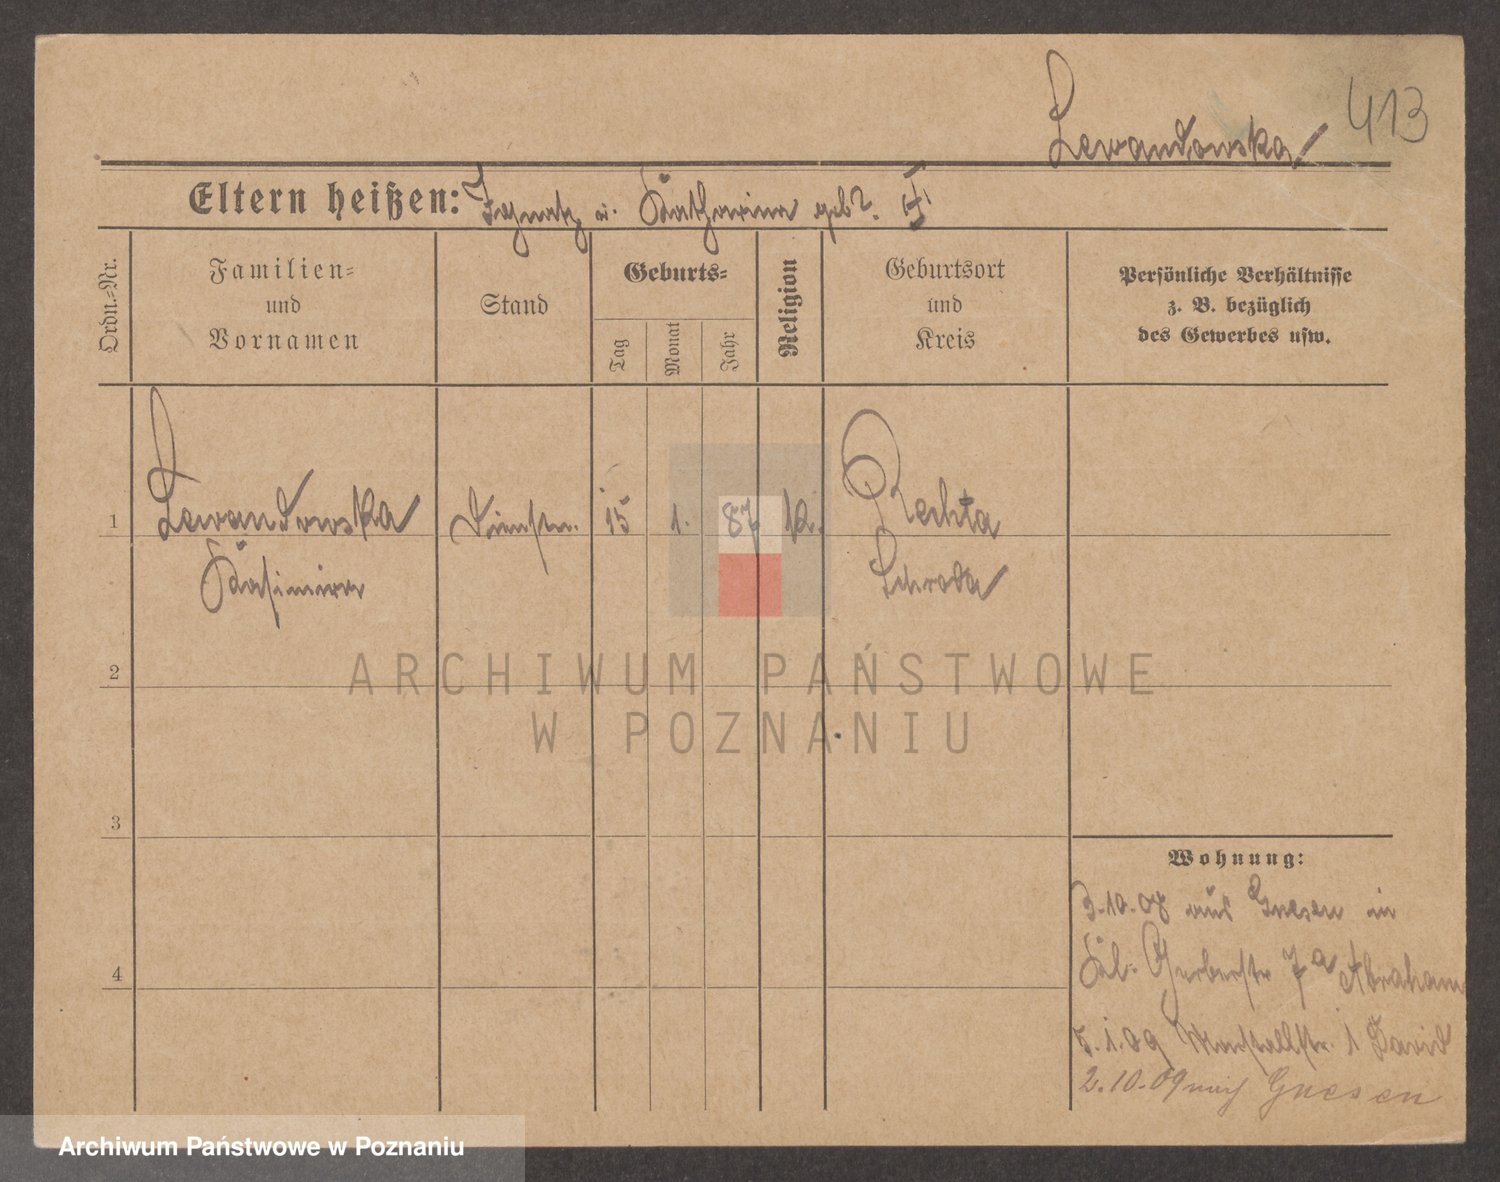 413
Lewandowska
Eltern heißen: Ignatz u. Katharina geb.
Ordn.-Nr.
Familien-
und
Vornamen
Stand
Geburts-
Tag
Monat
Jahr
Religion
Geburtsort
und
Kreis
Persönliche Verhältnisse
z. B. bezüglich
des Gewerbes usw.
1
Lewandowska
Kasimira
15
1.
87
k.
Rechta
Schroda
2
3
4
Wohnung:
3.10.08 aus Gnesen in
Gerberstr 7a Abraham
5.1.09 Marstallstr. 1 David
2.10.09 nach Gnesen
ARCHIWUM PAŃSTWOWE
W POZNANIU
Archiwum Państwowe w Poznaniu